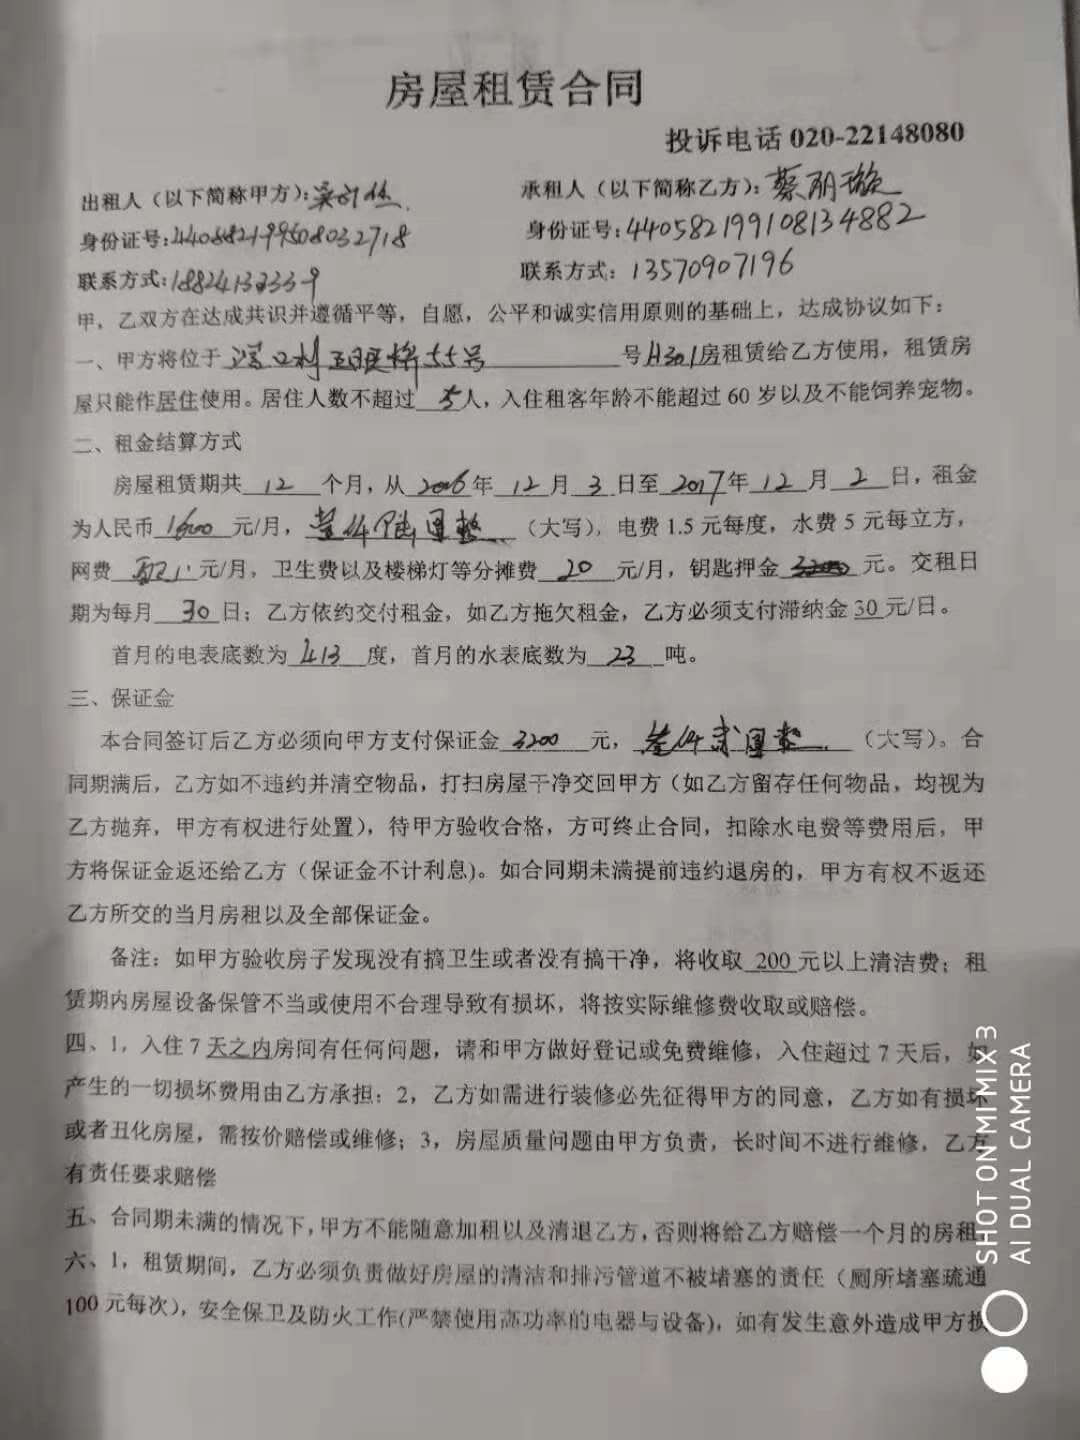 房屋租赁合同
投诉电话 020-22148080
出租人（以下简称甲方）: 承租人（以下简称乙方）: 蔡丽璇
身份证号: 身份证号: 440582199108134882
联系方式: 联系方式: 13570907196
甲，乙双方在达成共识并遵循平等，自愿，公平和诚实信用原则的基础上，达成协议如下：
一、甲方将位于 55号 号A301房租赁给乙方使用，租赁房
屋只能作居住使用。居住人数不超过 5 人，入住租客年龄不能超过 60 岁以及不能饲养宠物。
二、租金结算方式
房屋租赁期共 12 个月，从 2016 年 12 月 3 日至 2017 年 12 月 2 日，租金
为人民币 1600 元/月， （大写），电费 1.5 元每度，水费 5 元每立方，
网费 元/月，卫生费以及楼梯灯等分摊费 20 元/月，钥匙押金 元。交租日
期为每月 30 日；乙方依约交付租金，如乙方拖欠租金，乙方必须支付滞纳金 30 元/日。
首月的电表底数为 413 度，首月的水表底数为 23 吨。
三、保证金
本合同签订后乙方必须向甲方支付保证金 3200 元， （大写）。合
同期满后，乙方如不违约并清空物品，打扫房屋干净交回甲方（如乙方留存任何物品，均视为
乙方抛弃，甲方有权进行处置），待甲方验收合格，方可终止合同，扣除水电费等费用后，甲
方将保证金返还给乙方（保证金不计利息)。如合同期未满提前违约退房的，甲方有权不返还
乙方所交的当月房租以及全部保证金。
备注：如甲方验收房子发现没有搞卫生或者没有搞干净，将收取 200 元以上清洁费；租
赁期内房屋设备保管不当或使用不合理导致有损坏，将按实际维修费收取或赔偿。
四、1，入住 7 天之内房间有任何问题，请和甲方做好登记或免费维修，入住超过 7 天后，如
产生的一切损坏费用由乙方承担；2，乙方如需进行装修必先征得甲方的同意，乙方如有损坏
或者丑化房屋，需按价赔偿或维修；3，房屋质量问题由甲方负责，长时间不进行维修，乙方
有责任要求赔偿
五、合同期未满的情况下，甲方不能随意加租以及清退乙方，否则将给乙方赔偿一个月的房租
六、1，租赁期间，乙方必须负责做好房屋的清洁和排污管道不被堵塞的责任（厕所堵塞疏通
100 元每次），安全保卫及防火工作(严禁使用高功率的电器与设备)，如有发生意外造成甲方损
SHOT ON MI MIX 3
AI DUAL CAMERA